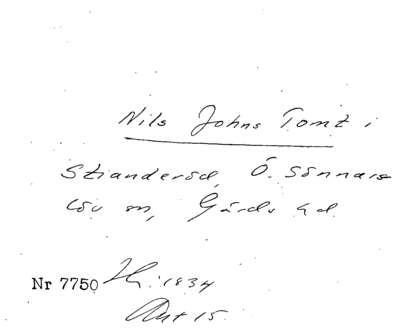 Nils Johns Tomt i
Strianderöd, Ö. Sönnars
löv sn, Gärds hd.
Nr 7750 1834
Akt 15.